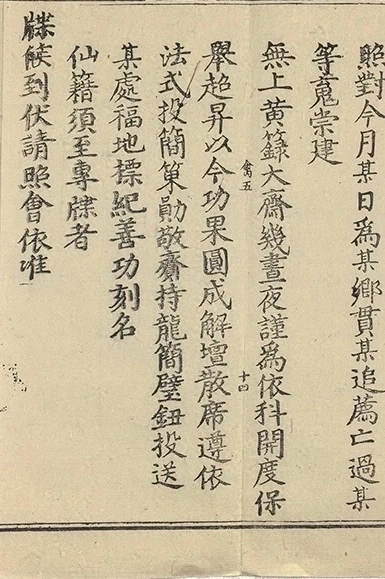 照對今月某日爲某鄉貫某追薦亡過某
等魂崇建
無上黄籙大齋幾晝夜謹爲依科開度保
禽五
十四
舉超昇以今功果圓成解壇散席遵依
法式投簡策勛敬齎持龍簡璧鈕投送
某處福地標紀善功刻名
仙籍須至專牒者
牒候到伏請照會依准